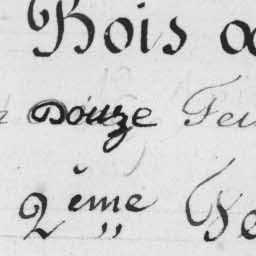 Bois
douze Feu
2ème